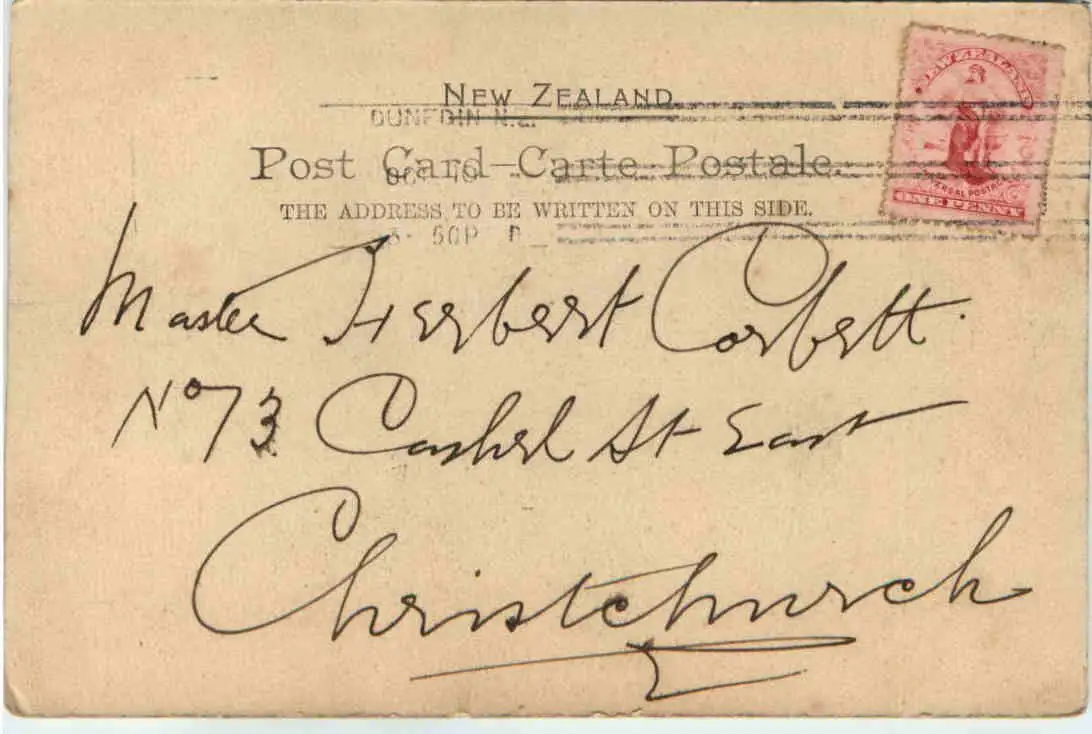 NEW ZEALAND
NEW ZEALAND
DUNEDIN N.Z.
Post Card—Carte Postale.
UNIVERSAL POSTAGE
ONE PENNY
THE ADDRESS TO BE WRITTEN ON THIS SIDE.
50P
Master Herbert Corbett.
No 73 Cashel St East
Christchurch